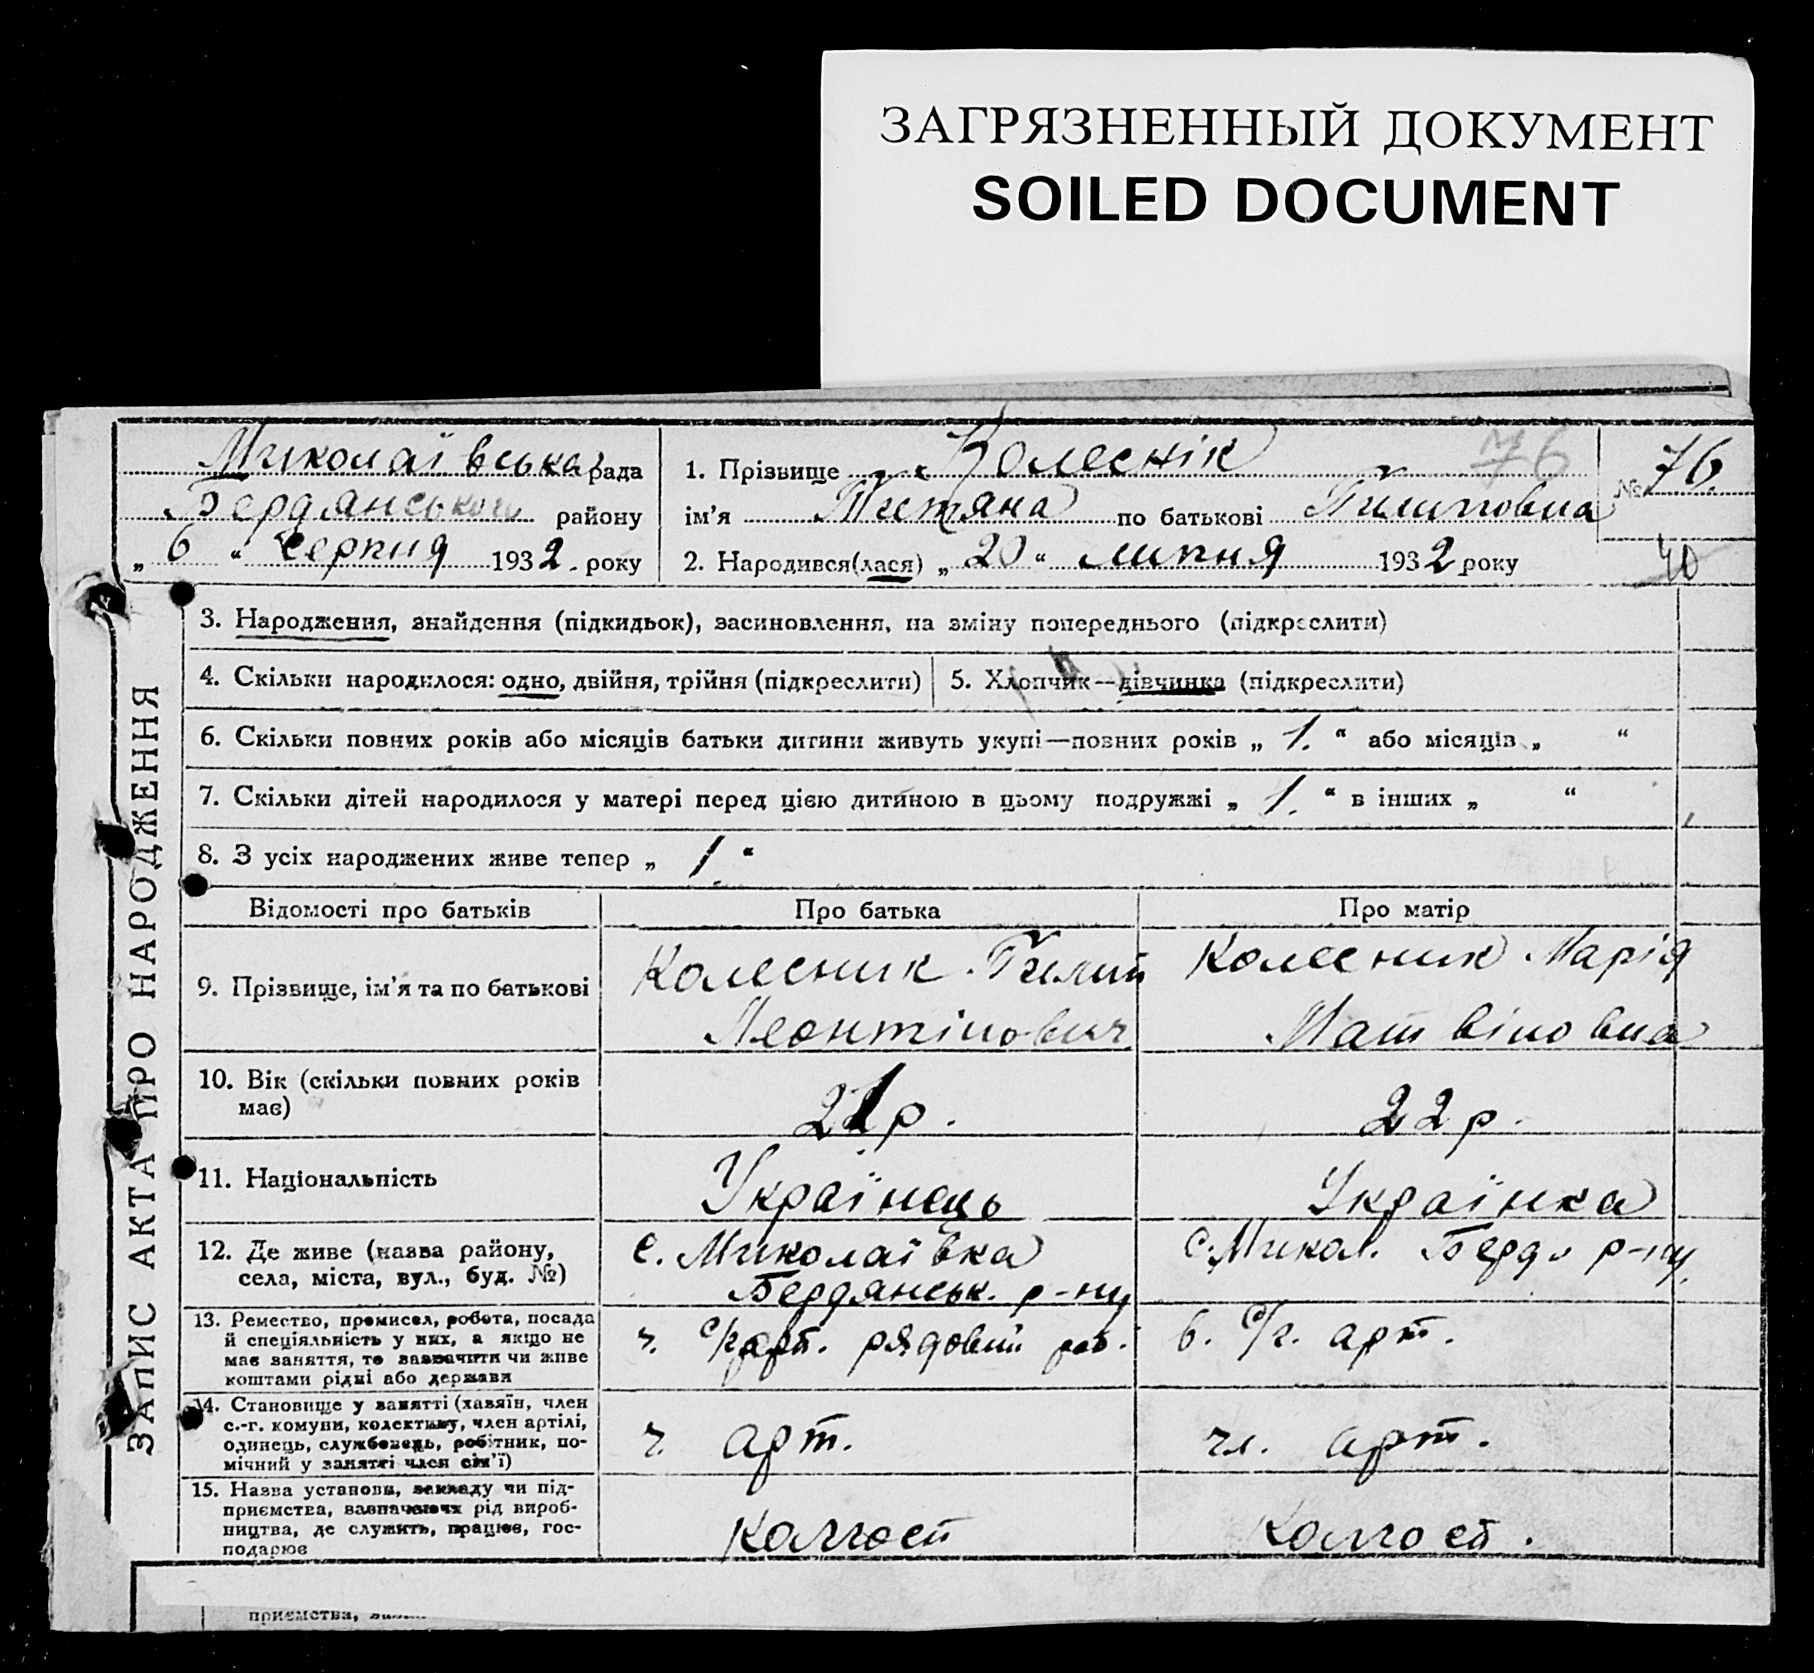 ЗАГРЯЗНЕННЫЙ ДОКУМЕНТ
SOILED DOCUMENT
Миколаївська рада
Бердянського району
„ 6 “ Серпня 1932. року
1. Прізвище Колеснік 76
ім'я Тетяна по батькові Пилиповна
2. Народився(лася) „ 20 “ липня 1932 року
№ 76
40
ЗАПИС АКТА ПРО НАРОДЖЕННЯ
3. Народження, знайдення (підкидьок), засиновлення, на зміну попереднього (підкреслити)
4. Скільки народилося: одно, двійня, трійня (підкреслити)
5. Хлопчик—дівчинка (підкреслити)
6. Скільки повних років або місяців батьки дитини живуть укупі—повних років „ 1. “ або місяців „ “
7. Скільки дітей народилося у матері перед цією дитиною в цьому подружжі „ 1. “ в інших „ “
8. З усіх народжених живе тепер „ 1. “
Відомості про батьків Про батька Про матір
9. Прізвище, ім'я та по батькові
Колесник Пилип
Леонтіпович
Колесник Марія
Матвіновна
10. Вік (скільки повних років
має)
21 р.
22 р.
11. Національність
Українець
Українка
12. Де живе (назва району,
села, міста, вул., буд. №)
с. Миколаївка
Бердянськ. р-ну
с. Микол. Берд. р-ну.
13. Ремество, промисел, робота, посада
й спеціяльність у них, а якщо не
має заняття, то зазначити чи живе
коштами рідні або держави
ч. с/г арт. рядовий роб.
в. с/г. арт.
14. Становище у занятті (хазяїн, член
с.-г. комуни, колективу, член артілі,
одинець, службовець, робітник, по-
мічний у занятті член сім'ї)
ч. арт.
чл. арт.
15. Назва установи, закладу чи під-
приємства, зазначаючи рід вироб-
ництва, де служить, працює, гос-
подарює
Колгосп
Колгосп.
приємства,